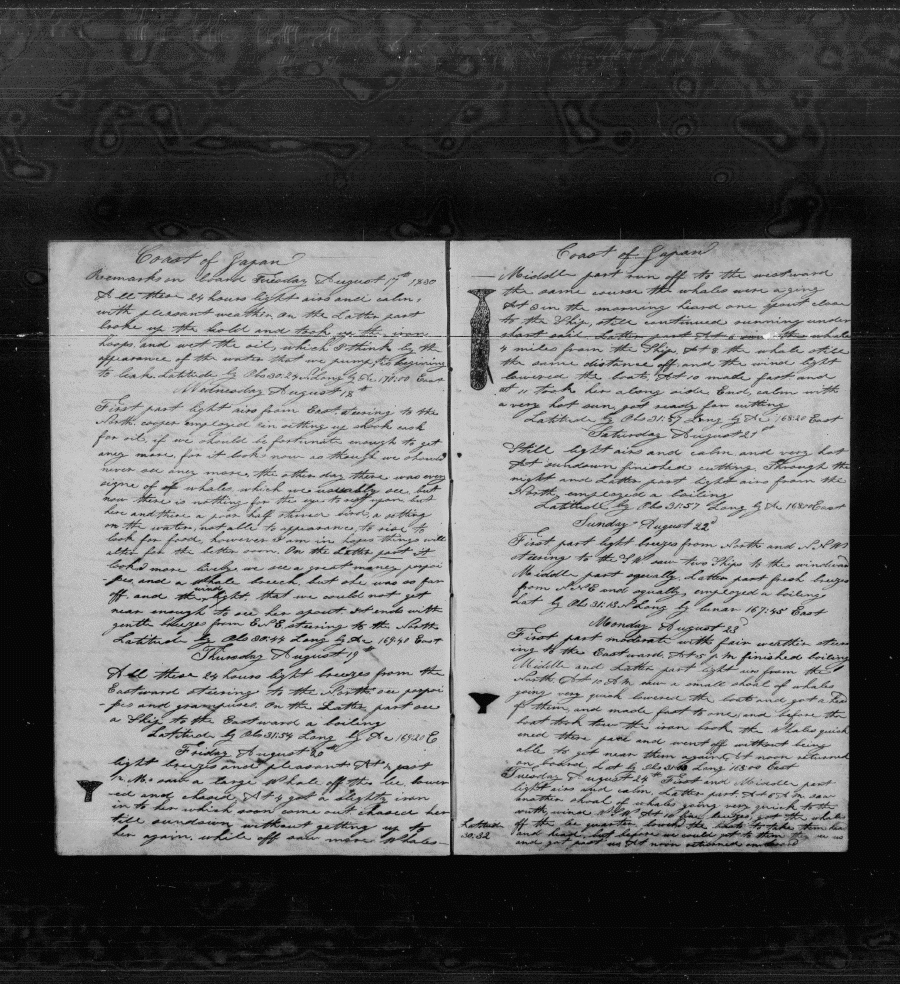 Coast of Japan
Remarks on board Tuesday August 17th 1830
All these 24 hours light airs and calm,
with pleasant weather, on the Latter part
broke up the hold and took up the iron
hoops and wet the oil, which I think by the
appearance of the water that we pump, is beginning
to leak. Latitude by Obs 30:24 N Long by Ac 171:00 East
Wednesday August 18th
First part light airs from East steering to the
North. cooper employed in setting up shook cask
for oil, if we should be fortunate enough to get
aney more, for it looks now as though we should
never see aney more, the other day there was every
signe of whales which we usually see, but
now there is nothing for the eye to rest upon but
her and there a poor half starved bird, a setting
on the water, not able to appearance, to rise to
look for food, however I am in hopes things will
alter for the better soon. On the Latter part it
looks more lively we see a great maney porpoi
-ses, and a Whale breech, but she was so far
off, and the wind light, that we could not get
near enough to see her spout. it ends with
gentle breezes from ENE steering to the North
Latitude by Obs 30:44 Long by Ac 169:41 East
Thursday August 19th
All these 24 hours light breezes from the
Eastward steering to the North. see porpoi
-ses and grampuses. On the Latter part see
a Ship to the Eastward a boiling
Latitude by Obs 31:54 Long by Ac 169:20 E
Friday August 20th
light breezes and pleasant At 4 past
P.M. saw a large Whale off the lee lower
-ed and chased, At 4 got a slighty iron
in to her which soon came out chased her
till sundown without getting up to
her again. while off saw more Whales
Coast of Japan
Middle part run off to the westward
the same course the whales were a going
At 3 in the morning heard one spout close
to the Ship, still continued running under
short sail. Latter part At 6 saw the whale
4 miles from the Ship, At 8, the whale still
the same distance off and the wind light
lowered the boats, At 10 made fast and
at 11 took her along side. End, calm with
a very hot sun, got ready for cutting
Latitude by Obs 31:57 Long by Ac 168:20 East
Saturday August 21st
Still light airs and calm and very hot
At sundown finished cutting. Through the
night and Latter part light airs from the
North, employed a boiling
Latitude by Obs 31:57 Long by Ac 168:00 East
Sunday August 22d
First part light breezes from North and NNW
steering to the SW saw two Ships to the windward
Middle part squally. Latter part fresh breezes
from NNE and squally, employed a boiling
Lat by Obs 31:18 N Long by lunar 167:45 East
Monday August 23d
First part moderate with fair weather steer
ing to the Eastward, At 5 P.M finished boiling
Middle and Latter part light air from the
North At 10 A.M. saw a small shoal of whales
going very quick lowered the boats and got a head
of them, and made fast to one, and before the
boat took thaw the iron broke, the Whales quick
ened there pace and went off without being
able to get near them again, At noon returned
on board, Lat by Obs 31:00 Long 168:00 East
Tuesday August 24th First and Middle part
light airs and calm, Latter part, At 8 A.M. saw
another shoal of whales going very quick to the
with wind At 10 fine breezes, got the whales
off the lee quarter, lowered the boats to take them
and head, but before we could get to them
and got past us At noon returned on board
Latitude
30:32